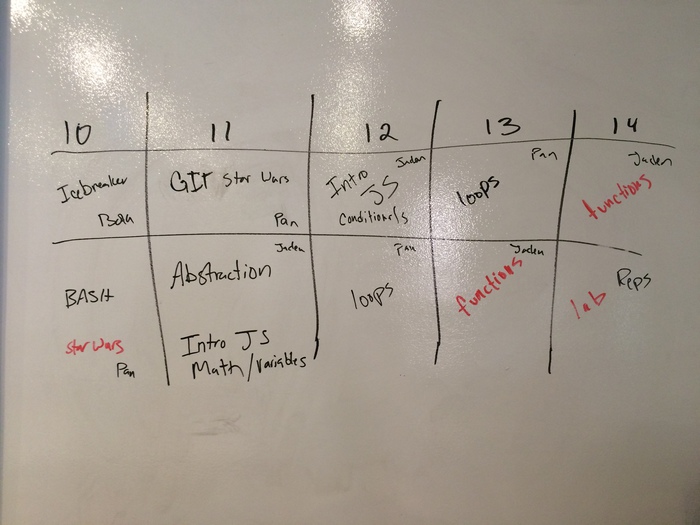 10 11 12 13 14
Icebreaker
GIT Star Wars
Pan
Jaden
Intro
JS
Conditionals
Pan
loops
Jaden
functions
BASH
Star Wars
Pan
Jaden
Abstraction
Intro JS
Math/Variables
Pan
loops
Jaden
functions
Reps
lab